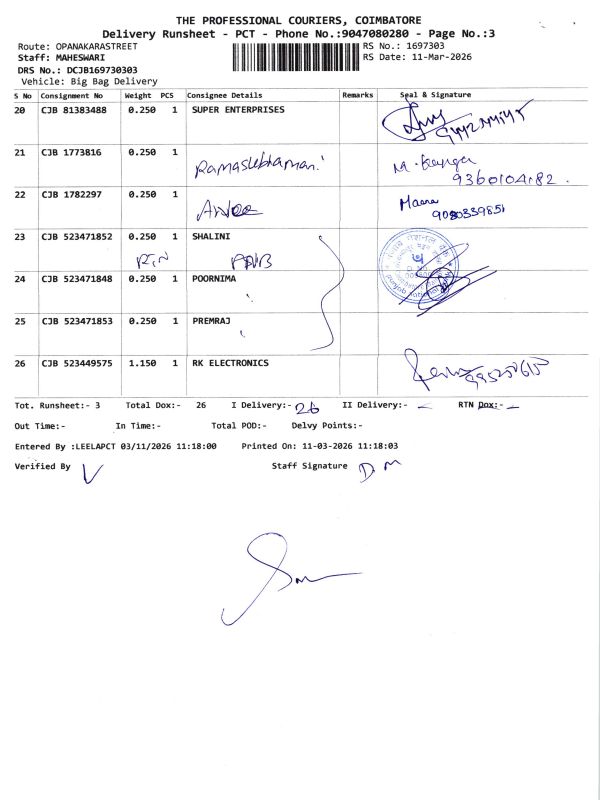 THE PROFESSIONAL COURIERS, COIMBATORE
Delivery Runsheet - PCT - Phone No.:9047080280 - Page No.:3
Route: OPANAKARASTREET RS No.: 1697303
Staff: MAHESWARI RS Date: 11-Mar-2026
DRS No.: DCJB169730303
Vehicle: Big Bag Delivery
S No Consignment No Weight PCS Consignee Details Remarks Seal & Signature
20 CJB 81383488 0.250 1 SUPER ENTERPRISES
21 CJB 1773816 0.250 1
9360104182
22 CJB 1782297 0.250 1
9080339851
23 CJB 523471852 0.250 1 SHALINI
PNB
24 CJB 523471848 0.250 1 POORNIMA
25 CJB 523471853 0.250 1 PREMRAJ
26 CJB 523449575 1.150 1 RK ELECTRONICS
Tot. Runsheet:- 3 Total Dox:- 26 I Delivery:- 26 II Delivery:- RTN Dox:-
Out Time:- In Time:- Total POD:- Delvy Points:-
Entered By :LEELAPCT 03/11/2026 11:18:00 Printed On: 11-03-2026 11:18:03
Verified By Staff Signature D. M